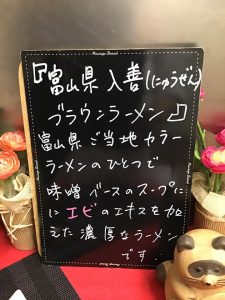 『富山県 入善(にゅうぜん)
ブラウンラーメン』
富山県ご当地カラー
ラーメンのひとつで
味噌ベースのスープに
に エビのエキスを加
えた濃厚なラーメン
です